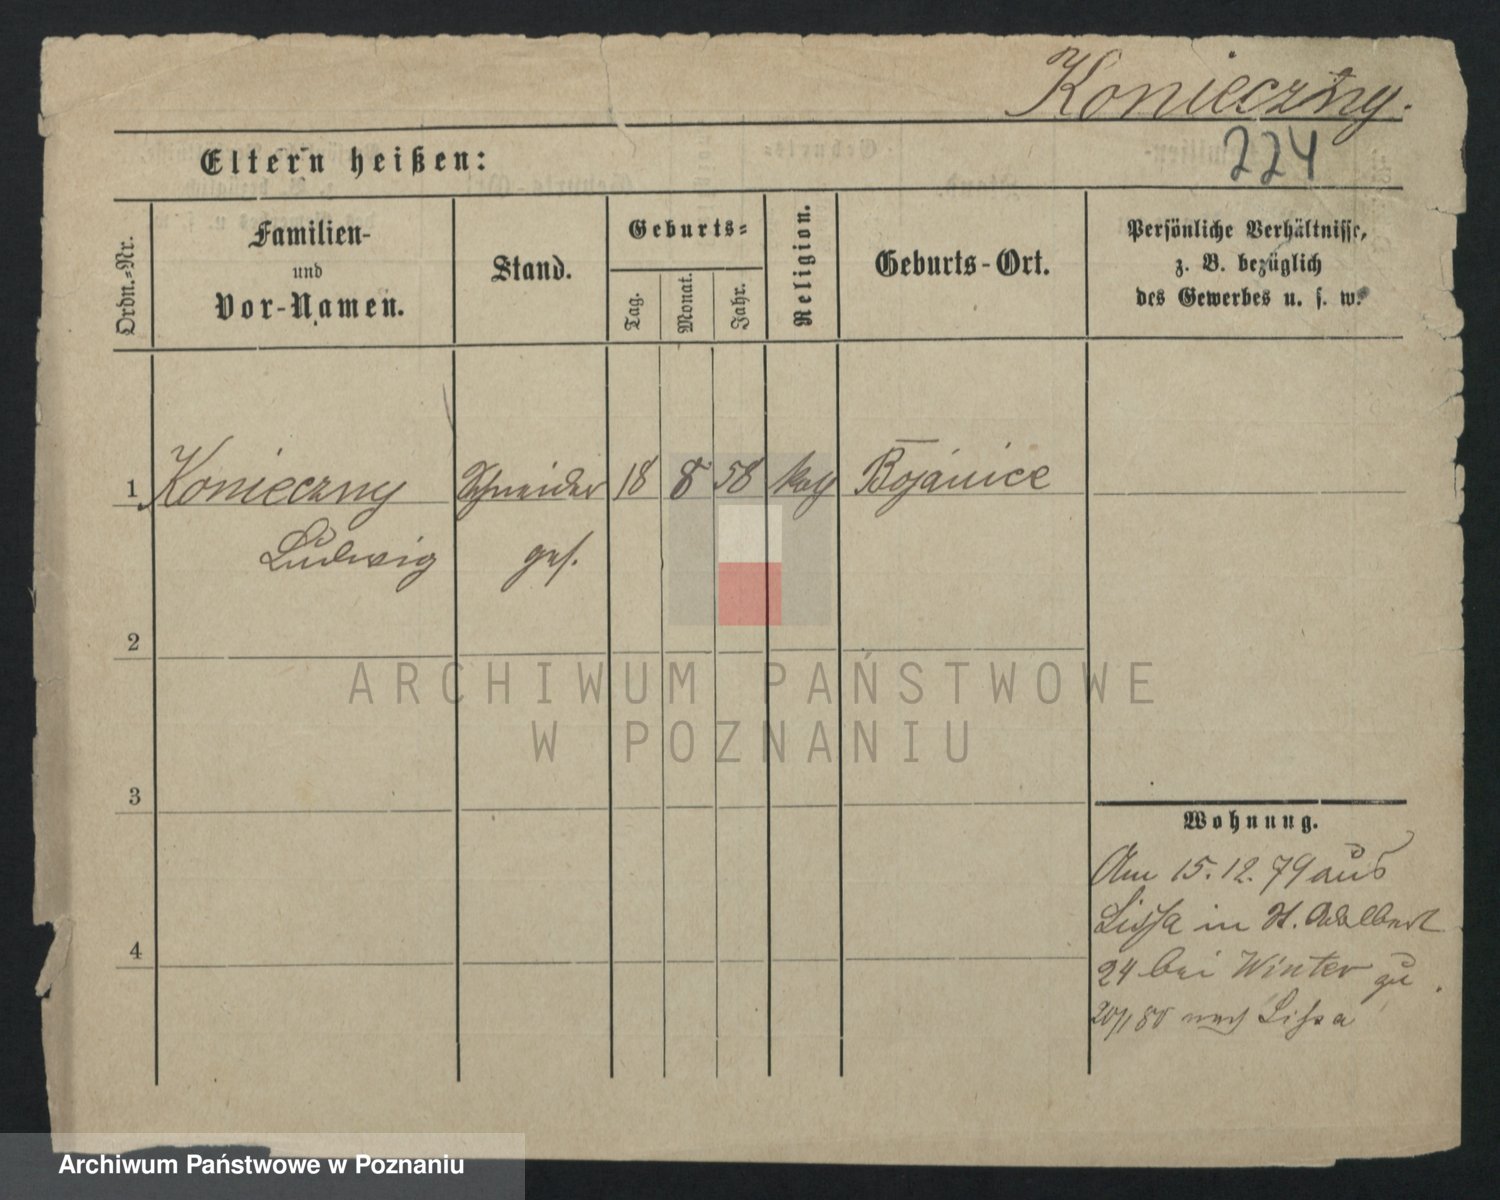 Konieczny.
224
Eltern heißen:
Ordn.-Nr.
Familien-
und
Vor-Namen.
Stand.
Geburts-
Tag.
Monat.
Jahr.
Religion.
Geburts-Ort.
Persönliche Verhältnisse,
z. B. bezüglich
des Gewerbes u. s. w.
1 Konieczny Schneider 18 8 58 kath Bojanice
Ludwig ges.
2
3
4
Wohnung.
Am 15. 12. 79 aus
Lissa in St. Adalbert
24 bei Winter zu
20/1 80 nach Lissa
ARCHIWUM PAŃSTWOWE
W POZNANIU
Archiwum Państwowe w Poznaniu